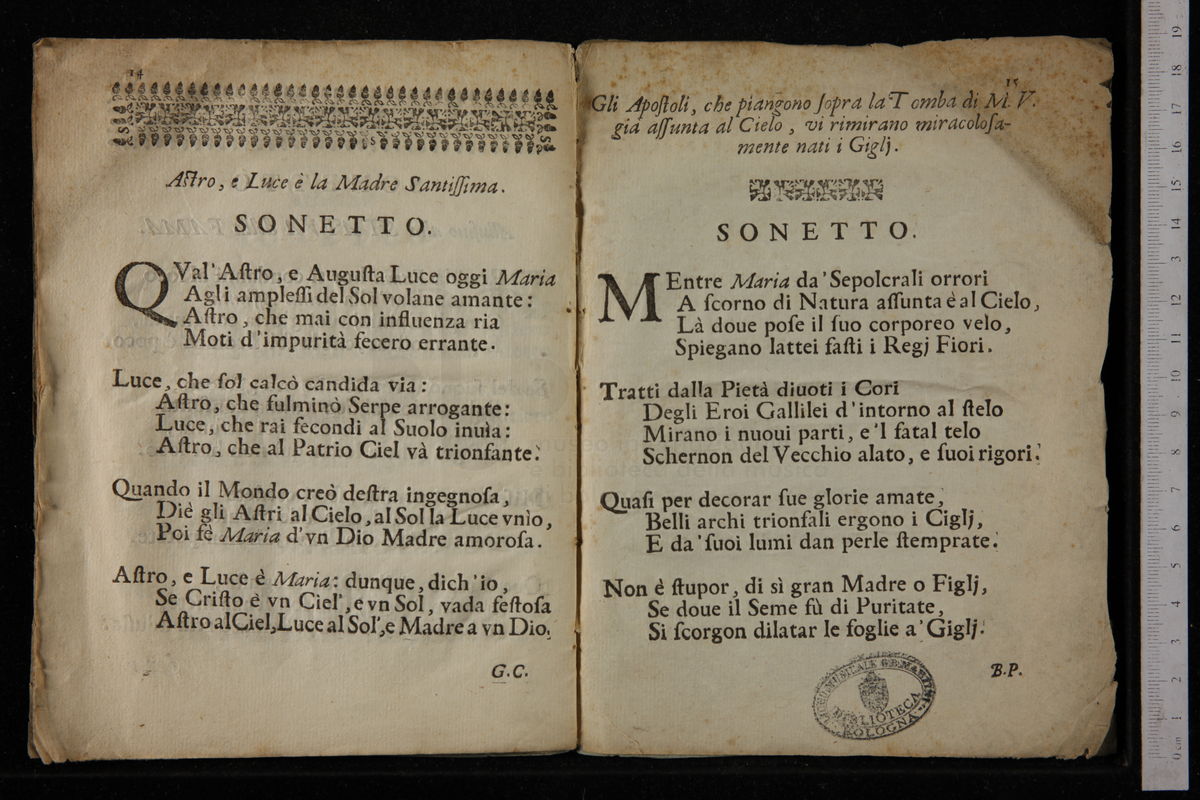 14
Astro, e Luce è la Madre Santissima.
SONETTO.
QVal' Astro, e Augusta Luce oggi Maria
Agli amplessi del Sol volane amante:
Astro, che mai con influenza ria
Moti d'impurità fecero errante.
Luce, che sol calcò candida via:
Astro, che fulminò Serpe arrogante:
Luce, che rai fecondi al Suolo inuìa:
Astro, che al Patrio Ciel và trionfante.
Quando il Mondo creò destra ingegnosa,
Diè gli Astri al Cielo, al Sol la Luce vnìo,
Poi fè Maria d'vn Dio Madre amorosa.
Astro, e Luce è Maria: dunque, dich'io,
Se Cristo è vn Ciel, e vn Sol, vada festosa
Astro al Ciel, Luce al Sol, e Madre a vn Dio.
G.C.
15
Gli Apostoli, che piangono sopra la Tomba di M. V.
già assunta al Cielo, vi rimirano miracolosa-
mente nati i Giglj.
SONETTO.
MEntre Maria da' Sepolcrali orrori
A scorno di Natura assunta è al Cielo,
Là doue pose il suo corporeo velo,
Spiegano lattei fasti i Regj Fiori.
Tratti dalla Pietà diuoti i Cori
Degli Eroi Gallilei d'intorno al stelo
Mirano i nuoui parti, e'l fatal telo
Schernon del Vecchio alato, e suoi rigori.
Quasi per decorar sue glorie amate,
Belli archi trionfali ergono i Ciglj,
E da' suoi lumi dan perle stemprate.
Non è stupor, di sì gran Madre o Figlj,
Se doue il Seme fù di Puritate,
Si scorgon dilatar le foglie a' Giglj.
B.P.
LICEO MUSICALE G.B. MARTINI
BIBLIOTECA
BOLOGNA
0 cm 1 2 3 4 5 6 7 8 9 10 11 12 13 14 15 16 17 18 19